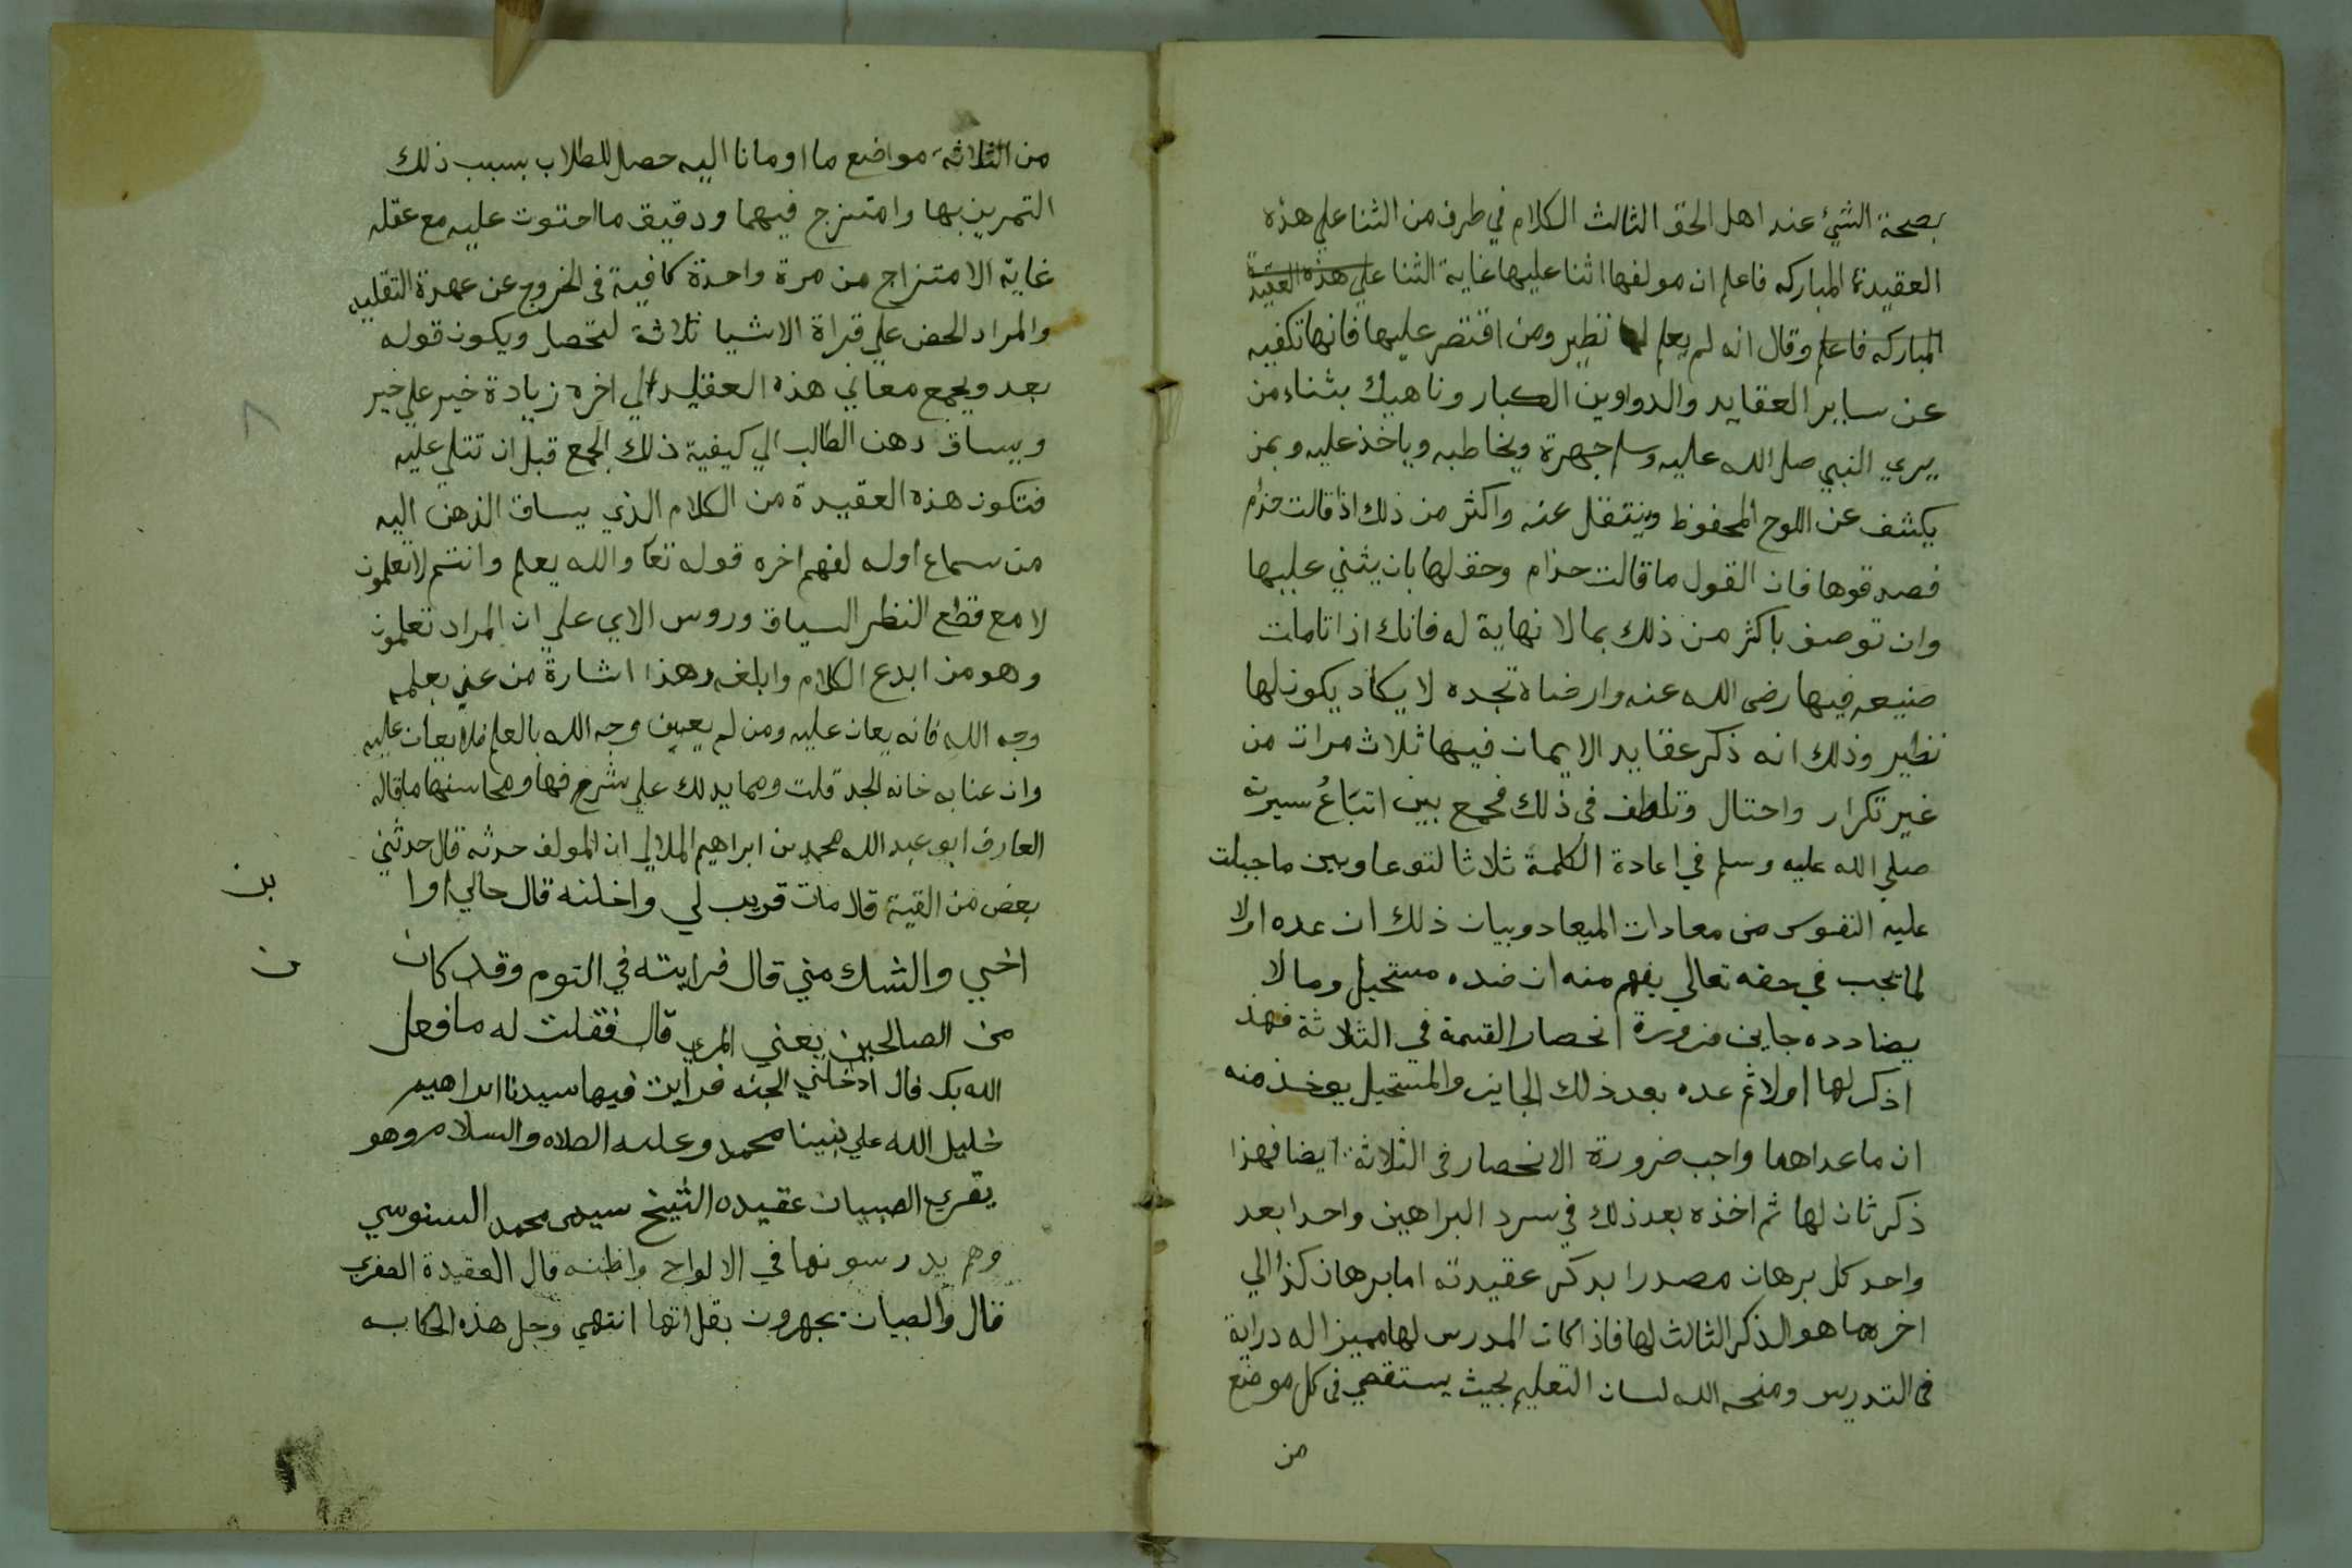 بصحة الشيء عند اهل الحق الثالث الكلام في طرف من الثنا علي هذه
العقيدة المباركه فاعلم ان مولفها اثنا عليها غاية الثنا علي هذه العقيدة
المباركه فاعلم وقال انه لم يعلم لها نظير ومن اقتصر عليها فانها تكفيه
عن ساير العقايد والدواوين الكبار وناهيك بثناء من
يري النبي صلي الله عليه وسلم جهرة ويخاطبه وياخذ عليه وبمن
يكشف عن اللوح المحفوظ وينتقل عنه واكثر من ذلك اذا قالت حذام
فصدقوها فان القول ما قالت حذام وحق لها بان يثني عليها
وان توصف باكثر من ذلك بما لا نهاية له فانك اذا تاملت
صنيعه فيها رضى الله عنه وارضاه تجده لا يكاد يكون لها
نظير وذلك انه ذكر عقايد الايمان فيها ثلاث مرات من
غير تكرار واحتال وتلطف فى ذلك فجمع بين اتباع سيرته
صلي الله عليه وسلم في اعادة الكلمة ثلاثا لتوعا وبين ما جبلت
عليه النفوس من معادات الميعاد وبيان ذلك ان عده اولا
لما تجب في حقه تعالي يفهم منه ان ضده مستحيل وما لا
يضادده جايز ضرورة انحصار القسمة في الثلاثة فهذ
اذكر لها اولا ثم عده بعد ذلك الجايز والمستحيل يوخذ منه
ان ما عداهما واجب ضرورة الانحصار فى الثلاثة ايضا فهذا
ذكر ثان لها ثم اخذه بعد ذلك في سرد البراهين واحدا بعد
واحد كل برهان مصدرا بدكر عقيدته اما برهان كذا الي
اخرها هو الذكر الثالث لها فاذا كان المدرس لها مميزا له دراية
فى التدريس ومنحه الله لسان التعليم بحيث يستقصي فى كل موضع
من
من الثلاثة مواضع ما اومانا اليه حصل للطلاب بسبب ذلك
التمرين بها وامتزج فيهما ودقيق ما احتوت عليه مع عقله
غاية الامتزاج من مرة واحدة كافية فى الخروج عن عهدة التقليد
والمراد الحض علي قراة الاشيا ثلاثة لتحصل ويكون قوله
بعد ويجمع معاني هذه العقايد الي اخره زيادة خير علي خير
ويساق دهن الطالب الي كيفية ذلك الجمع قبل ان تتلي عليه
فتكون هذه العقيدة من الكلام الذي يساق الذهن اليه
من سماع اوله لفهم اخره قوله تعا والله يعلم وانتم لا تعلمون
لا مع قطع النظر السياق وروس الاي علي ان المراد تعلمون
وهو من ابدع الكلام وابلغه وهذا اشارة من عني بعلمه
وجه الله فانه يعان عليه ومن لم يعين وجه الله بالعلم فلا يعان عليه
وان عنا به خانه الجد قلت ومما يدلك علي شرفها ومحاسنها ما قاله
العارف ابو عبد الله محمد بن ابراهيم الملالي ان المولف حدثه قال حدثني
بعض من القية قال مات قريب لي واخلنه قال خالي اوا
بن
اخي والشك مني قال فرايته في النوم وقد كان
ن
من الصالحين يعني المرى قال فقلت له ما فعل
الله بك قال ادخلني الجنه فرايت فيها سيدنا ابراهيم
خليل الله علي نبينا محمد وعليه الصلاه والسلام وهو
يقري الصبيان عقيده الشيخ سيدى محمد السنوسي
وهم يدرسونها في الالواح واظنه قال العقيدة الصغرى
قال والصبيان يجهرون بقراتها انتهي وجل هذه الحكايه